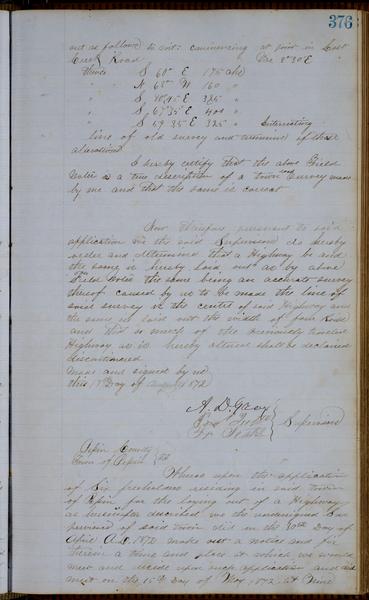 376
out as follows to wit: commencing at point in Lost
Creek Road
Thence S 60° E 175
" N 65° 160 "
" S 325 "
" S 67°35' E 400 "
" S 69 35 E 325 " Intersecting
line of old survey and terminus of these
alterations
I hereby certify that the above Field
Notes is a true description of a town road survey made
by me and that the same is correct
Now Therefore pursuant to said
application we the said Supervisors do hereby
order and determine that a Highway be and
the same is hereby laid out as by above
Field Notes the same being an accurate survey
thereof caused by us to be made the line of
said survey is the center of said Highway and
the same is laid out the width of four Rods
and that so much of the previously traveled
Highway as is hereby altered shall be declared
discontinued
Made and signed by us
this Day of August 1872
A. D. Gray
Supervisors
Pepin County
Town of Pepin } SS
Whereas upon the application
of Six freeholders residing in said town
of Pepin for the laying out of a Highway
as hereinafter described we the undersigned Su
pervisors of said town did on the 30th Day of
April A.D. 1872 make out a notice and fix
therein a time and place at which we would
meet and decide upon such application and did
meet on the 15th Day of May 1872 at nine